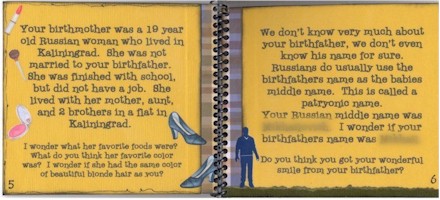 Your birthmother was a 19 year
old Russian woman who lived in
Kaliningrad. She was not
married to your birthfather.
She was finished with school,
but did not have a job. She
lived with her mother, aunt,
and 2 brothers in a flat in
Kaliningrad.
I wonder what her favorite foods were?
What do you think her favorite color
was? I wonder if she had the same color
of beautiful blonde hair as you?
5
We don't know very much about
your birthfather, we don't even
know his name for sure.
Russians do usually use the
birthfathers name as the babies
middle name. This is called a
patryonic name.
Your Russian middle name was
I wonder if your
birthfathers name was
Do you think you got your wonderful
smile from your birthfather?
6